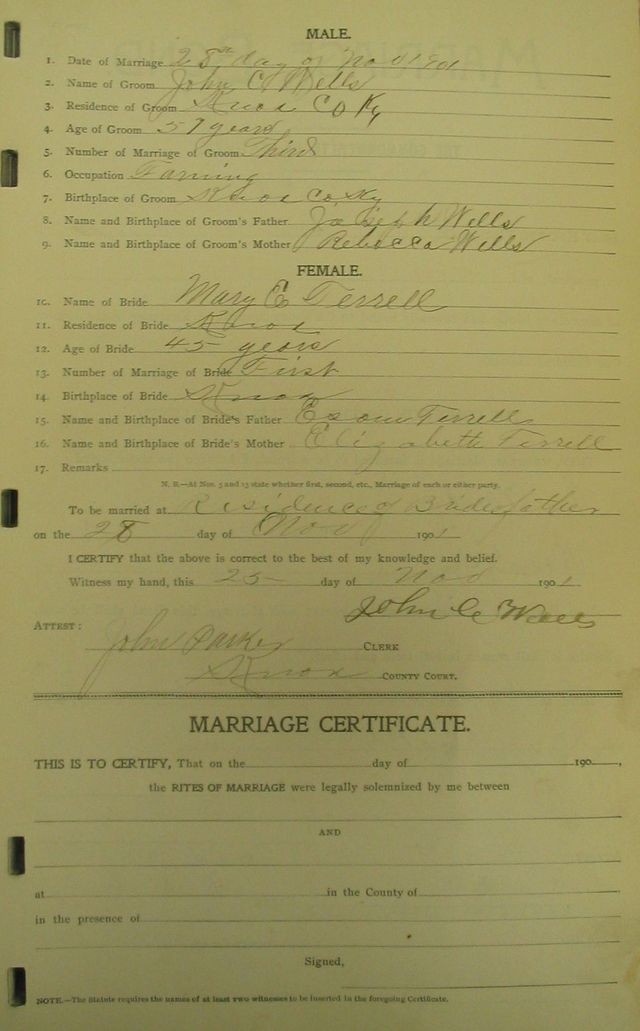 MALE.
1. Date of Marriage 28th day of Nov 1901
2. Name of Groom John C Wells
3. Residence of Groom Knox Co Ky
4. Age of Groom 57 years
5. Number of Marriage of Groom Third
6. Occupation Farming
7. Birthplace of Groom Knox Co Ky
8. Name and Birthplace of Groom's Father Joseph Wells
9. Name and Birthplace of Groom's Mother Rebecca Wells
FEMALE.
10. Name of Bride Mary E Terrell
11. Residence of Bride Knox
12. Age of Bride 45 years
13. Number of Marriage of Bride First
14. Birthplace of Bride Knox
15. Name and Birthplace of Bride's Father Esom Terrell
16. Name and Birthplace of Bride's Mother Elizabeth Terrell
17. Remarks
N. B.—At Nos. 5 and 13 state whether first, second, etc., Marriage of each or either party.
To be married at Residence of Brides father
on the 28 day of Nov 1901
I CERTIFY that the above is correct to the best of my knowledge and belief.
Witness my hand, this 25 day of Nov 1901
John C Wells
ATTEST:
John Parker CLERK
Knox COUNTY COURT.
MARRIAGE CERTIFICATE.
THIS IS TO CERTIFY, That on the day of 190 ,
the RITES OF MARRIAGE were legally solemnized by me between
AND
at in the County of
in the presence of
Signed,
NOTE.—The Statute requires the names of at least two witnesses to be inserted in the foregoing Certificate.